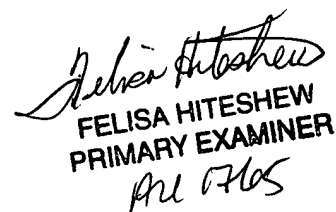 Felisa Hiteshew
FELISA HITESHEW
PRIMARY EXAMINER
AU 1765